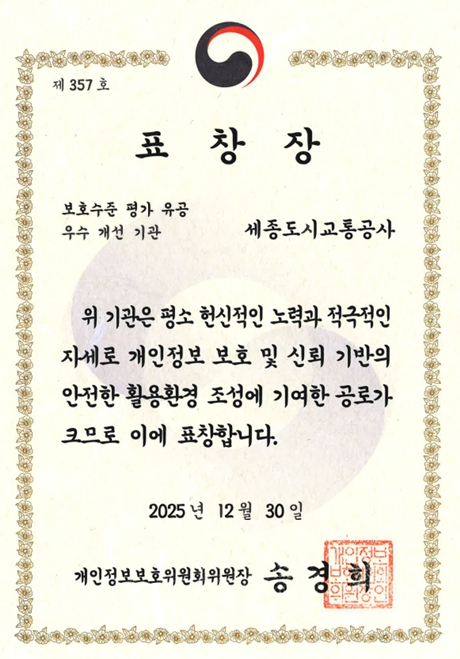 제 357 호
표 창 장
보호수준 평가 유공
우수 개선 기관 세종도시교통공사
위 기관은 평소 헌신적인 노력과 적극적인
자세로 개인정보 보호 및 신뢰 기반의
안전한 활용환경 조성에 기여한 공로가
크므로 이에 표창합니다.
2025년 12월 30일
개인정보보호위원회위원장 송경희
개인정보
보호위원회
위원장인